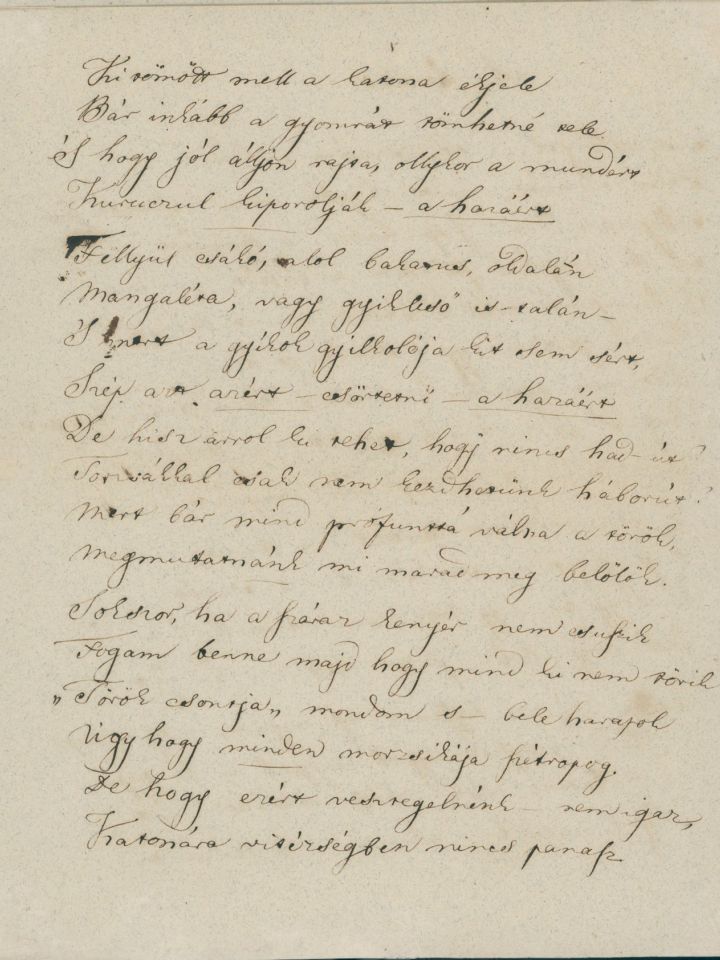 Ki tömött mell a katona ékjele
Bár inkább a gyomrát tömhetné tele
S hogy jól álljon rajta, ollykor a mundért
Kuruczul kiporolják – a hazáért
Fellyül csákó, alol bakancs, óldalán
Mangaléta, vagy gyikleső is – talán –
S mert a gyíkok gyilkolója kit sem sért,
Szép azt azért – csörtetni – a hazáért
De hisz arrol ki tehet, hogy nincs had-út?
Torzsákkal csak nem kezdhetünk háborút?
Mert bár mind prófunttá válna a török,
Megmutatnánk mi marad meg belölök.
Sokszor, ha a száraz kenyér nem csuszik
Fogam benne majd hogy mind ki nem törik
„Török csontja„ mondom s – bele harapok
Úgy hogy minden morzsikája szétropog.
De hogy ezért vesztegelnénk – nem igaz,
Katonára vitézségben nincs panasz